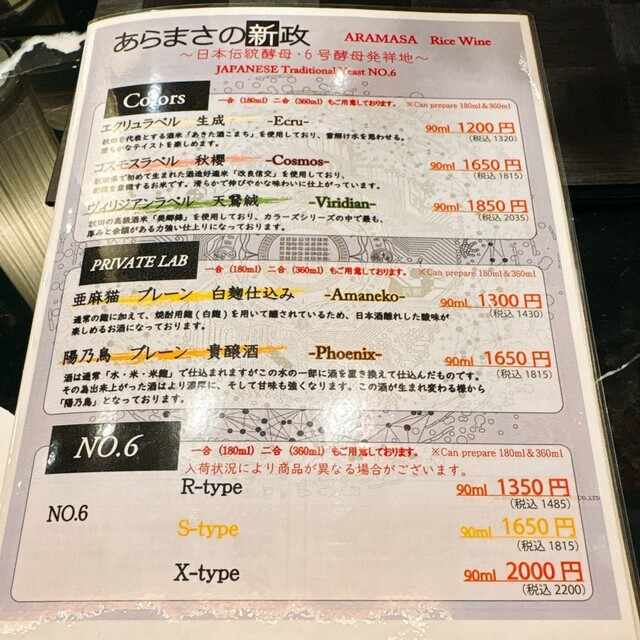 あらまさの新政 ARAMASA Rice Wine
～日本伝統酵母・6号酵母発祥地～
JAPANESE Traditional Yeast NO.6
Colors 一合 (180ml) 二合 (360ml) もご用意しております。 ※Can prepare 180ml＆360ml
エクリュラベル 生成 -Ecru- 90ml 1200円
秋田を代表とする酒米「あきた酒こまち」を使用しており、雪解け水を思わせる。 (税込1320)
滑らかなテイストを楽しめます。
コスモスラベル 秋櫻 -Cosmos- 90ml 1650円
秋田県で初めて生まれた酒造好適米「改良信交」を使用しており、 (税込1815)
お米です。滑らかで伸びやかな味わいに仕上がっています。
ヴィリジアンラベル 天鵞絨 -Viridian- 90ml 1850円
秋田の高級酒米「美郷錦」を使用しており、カラーズシリーズの中で最も、 (税込2035)
厚みと余韻がある力強い仕上りになっております。
PRIVATE LAB 一合 (180ml) 二合 (360ml) もご用意しております。 ※Can prepare 180ml＆360ml
亜麻猫 プレーン 白麹仕込み -Amaneko- 90ml 1300円
通常の麹に加えて、焼酎用麹(白麹)を用いて醸されているため、日本酒離れした酸味が (税込1430)
楽しめるお酒になっております。
陽乃鳥 プレーン 貴醸酒 -Phoenix- 90ml 1650円
酒は通常「水・米・米麹」で仕込まれますがこの水の一部に酒を置き換えて仕込んだものです。 (税込1815)
その為出来上がった酒はより濃厚に、そして甘味も強くなります。この酒が生まれ変わる様から
「陽乃鳥」となっております。
NO.6 一合 (180ml) 二合 (360ml) もご用意しております。 ※Can prepare 180ml＆360ml
入荷状況により商品が異なる場合がございます。
R-type 90ml 1350円
(税込1485)
NO.6
S-type 90ml 1650円
(税込1815)
X-type 90ml 2000円
(税込2200)